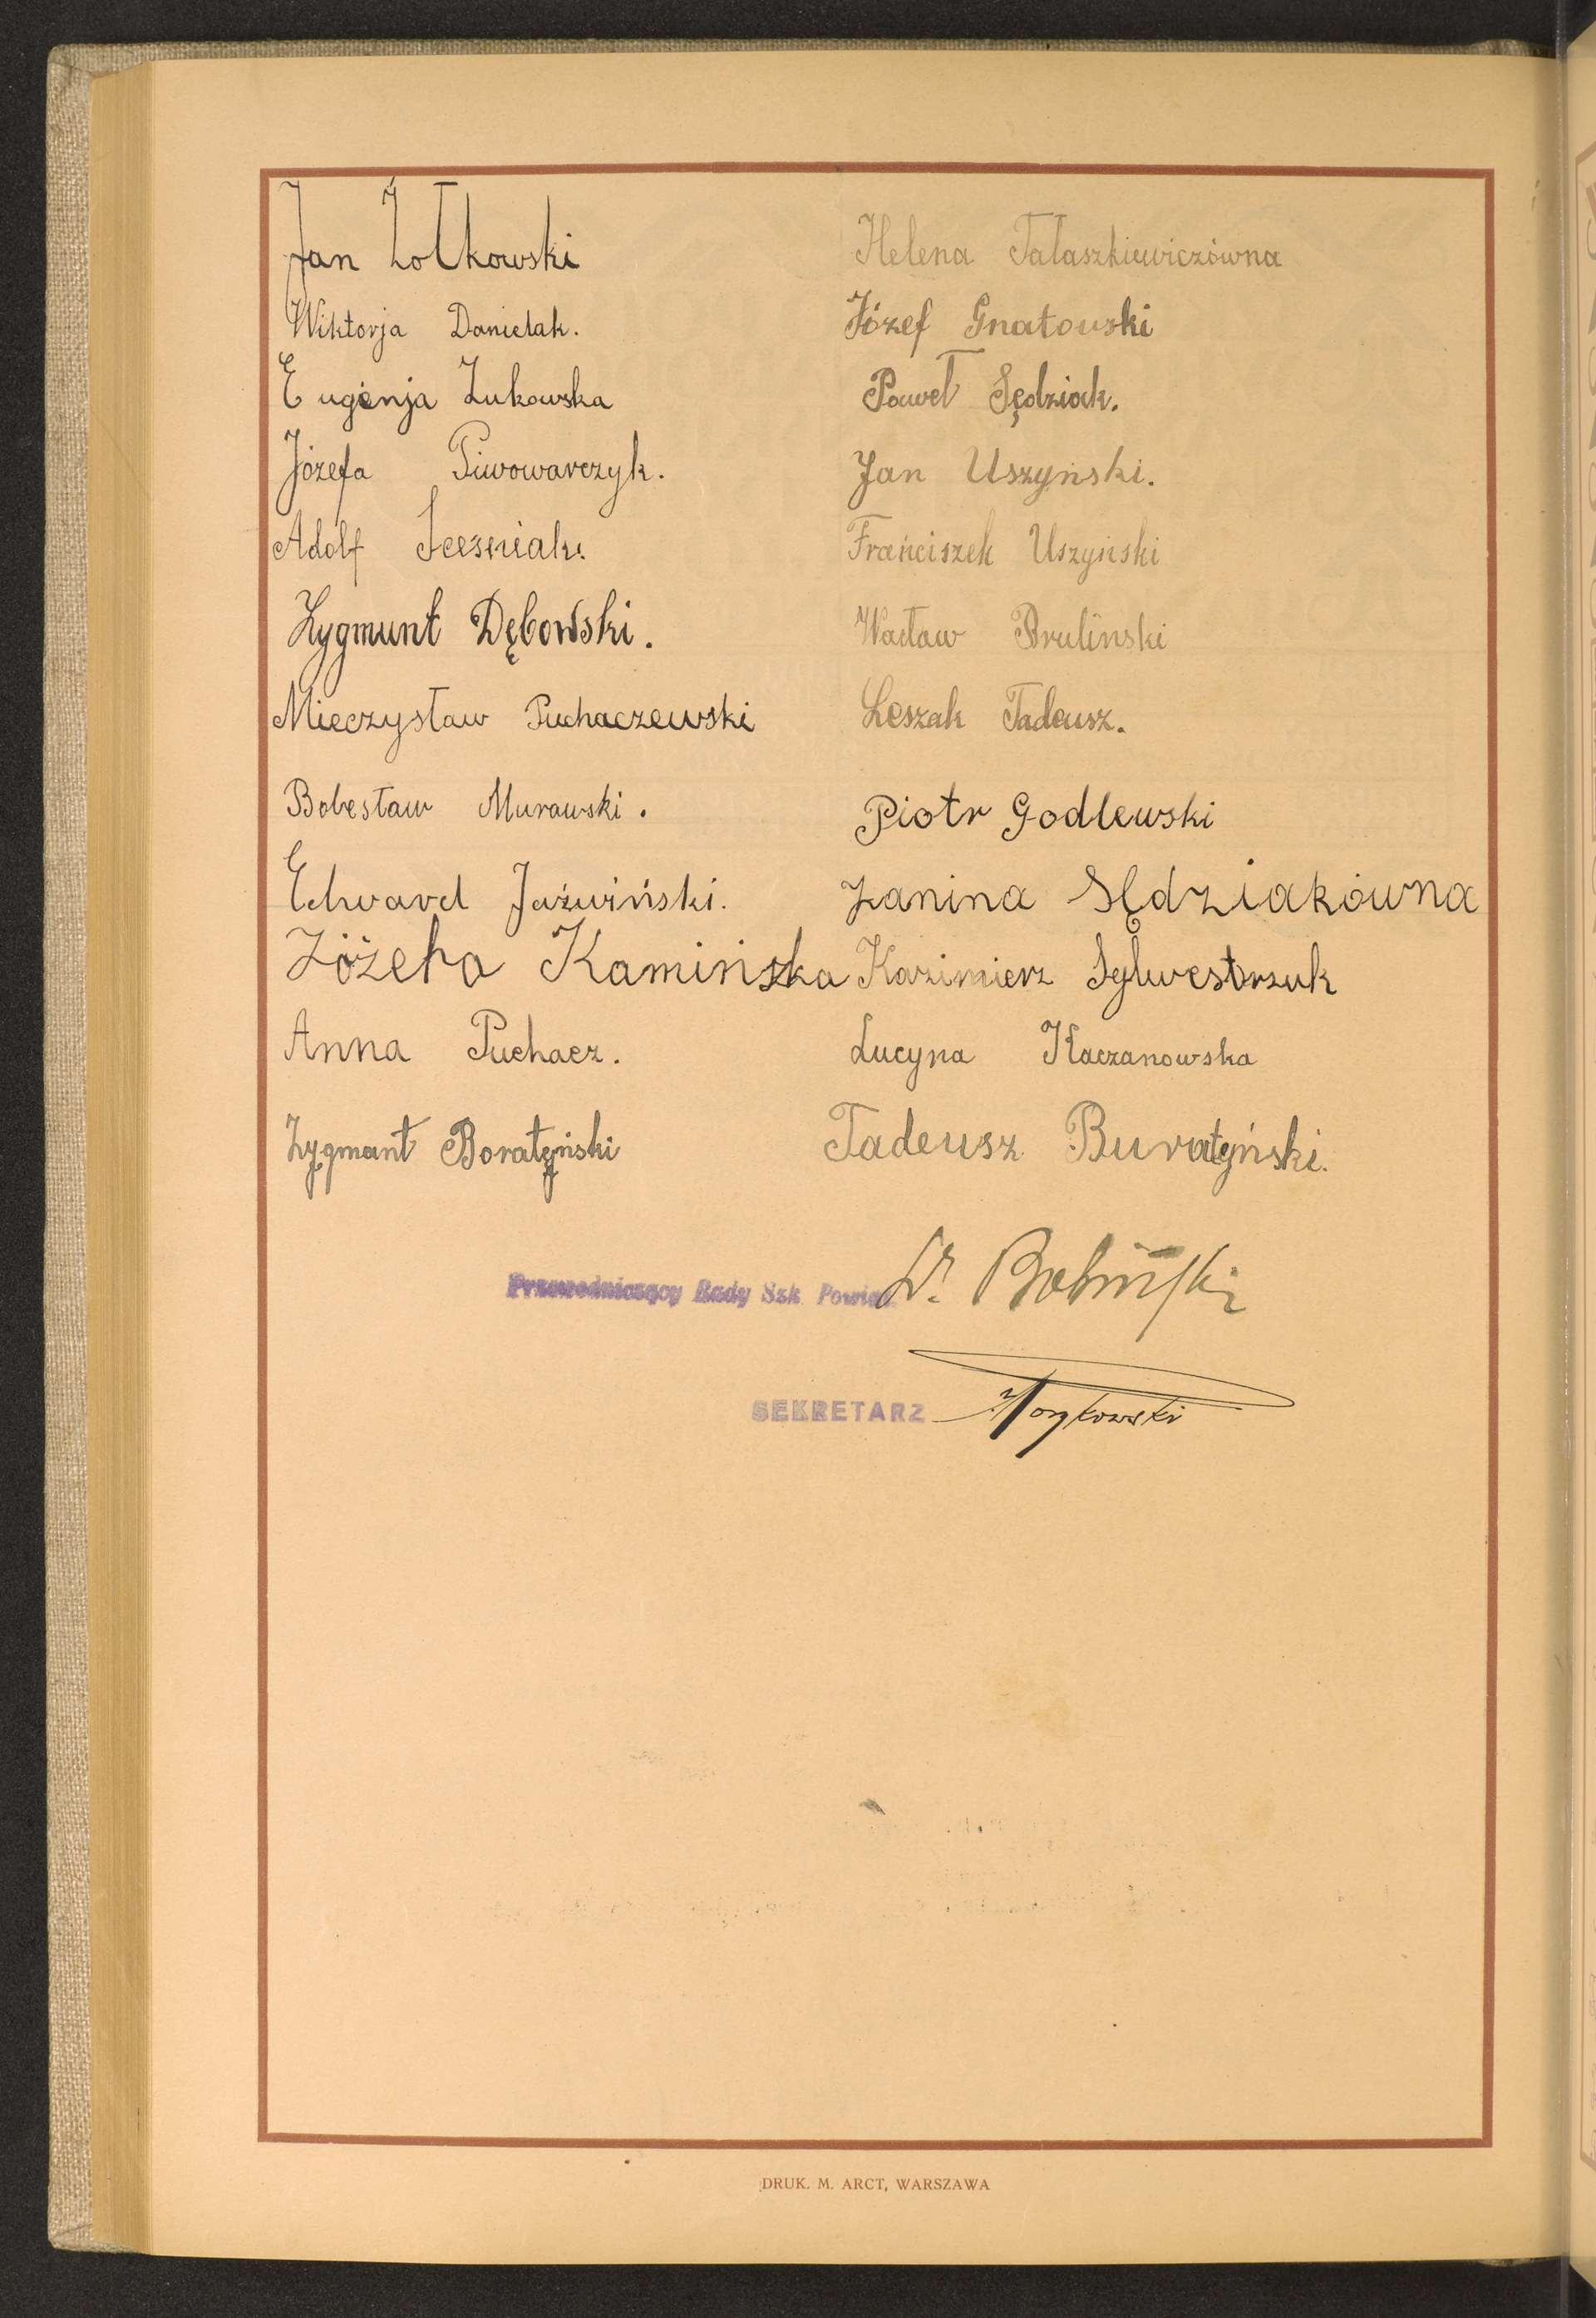 Jan Żołkowski
Wiktorja Danielak.
Eugenja Żukowska
Józefa Piwowarczyk.
Adolf
Zygmunt Dębowski.
Mieczysław Puchaczewski
Bolesław Murawski.
Edward Jaźwiński.
Józefa Kamińska
Anna Puchacz.
Zygmunt Boratyński
Helena Tałaszkiewiczówna
Józef Gnatowski
Paweł Sędziak.
Jan Uszyński.
Franciszek Uszyński
Wacław Bruliński
Leszak Tadeusz.
Piotr Godlewski
Janina Sędziakówna
Kazimierz Sylwestrzuk
Lucyna Kaczanowska
Tadeusz Buratyński.
Przewodniczący Rady Szk. Powiat.
Dr.
SEKRETARZ
DRUK. M. ARCT, WARSZAWA